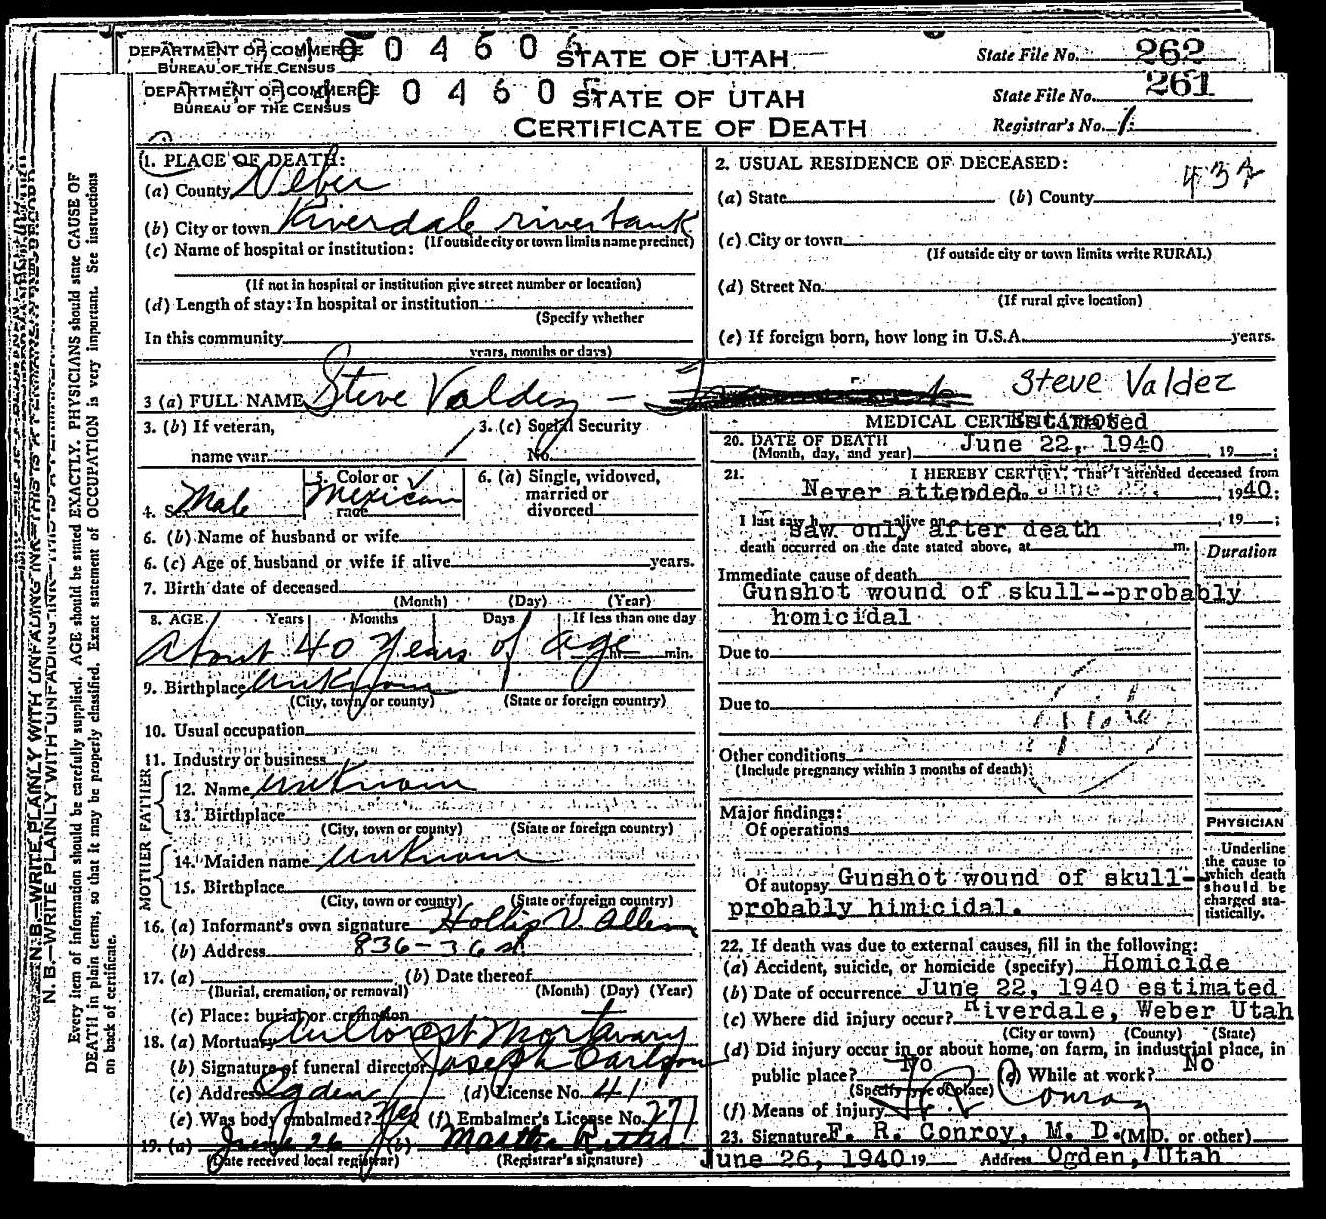 DEPARTMENT OF COMMERCE
BUREAU OF THE CENSUS
0 0 4 6 0
STATE OF UTAH
State File No. 262
DEPARTMENT OF COMMERCE
BUREAU OF THE CENSUS
0 0 4 6 0 5
STATE OF UTAH
CERTIFICATE OF DEATH
State File No. 261
Registrar's No. 1
N. B.—WRITE PLAINLY WITH UNFADING INK—THIS IS A PERMANENT
N. B.—WRITE PLAINLY WITH UNFADING INK—THIS IS A PERMANENT
Every item of information should be carefully supplied. AGE should be stated EXACTLY. PHYSICIANS should state CAUSE OF
DEATH in plain terms, so that it may be properly classified. Exact statement of OCCUPATION is very important. See instructions
on back of certificate.
1. PLACE OF DEATH:
(a) County Weber
(b) City or town Riverdale river bank
(If outside city or town limits name precinct)
(c) Name of hospital or institution:
(If not in hospital or institution give street number or location)
(d) Length of stay: In hospital or institution
(Specify whether
In this community
years, months or days)
2. USUAL RESIDENCE OF DECEASED:
(a) State (b) County
(c) City or town
(If outside city or town limits write RURAL)
(d) Street No.
(If rural give location)
(e) If foreign born, how long in U.S.A. years.
3 (a) FULL NAME Steve Valdez — Steve Valdez
3. (b) If veteran,
name war
3. (c) Social Security
No.
4. Sex Male
5. Color or race Mexican
6. (a) Single, widowed,
married or
divorced
6. (b) Name of husband or wife
6. (c) Age of husband or wife if alive years.
7. Birth date of deceased
(Month) (Day) (Year)
8. AGE Years Months Days If less than one day
About 40 years of age hr. min.
9. Birthplace unknown
(City, town, or county) (State or foreign country)
10. Usual occupation
11. Industry or business
FATHER
12. Name unknown
13. Birthplace
(City, town or county) (State or foreign country)
MOTHER
14. Maiden name unknown
15. Birthplace
(City, town or county) (State or foreign country)
16. (a) Informant's own signature Hollis V. Allen
(b) Address 836-36 st.
17. (a) (b) Date thereof
(Burial, cremation, or removal) (Month) (Day) (Year)
(c) Place: burial or cremation
18. (a) Mortuary Aultorest Mortuary
(b) Signature of funeral director Joseph Carlson
(c) Address Ogden (d) License No. 41
(e) Was body embalmed? Yes (f) Embalmer's License No. 271
19. (a) June 26 (b) Martha
(Date received local registrar) (Registrar's signature)
MEDICAL CERTIFICATION
Estimated
20. DATE OF DEATH June 22, 1940, 19 ;
(Month, day, and year)
21. I HEREBY CERTIFY, That I attended deceased from
Never attended June 22, 1940;
I last saw h alive on , 19 ;
saw only after death
death occurred on the date stated above, at m.
Duration
Immediate cause of death
Gunshot wound of skull--probably
homicidal
Due to
Due to
Other conditions
(Include pregnancy within 3 months of death)
Major findings:
Of operations
Of autopsy Gunshot wound of skull--
probably himicidal.
PHYSICIAN
Underline
the cause to
which death
should be
charged sta-
tistically.
22. If death was due to external causes, fill in the following:
(a) Accident, suicide, or homicide (specify) Homicide
(b) Date of occurrence June 22, 1940 estimated
(c) Where did injury occur? Riverdale, Weber Utah
(City or town) (County) (State)
(d) Did injury occur in or about home, on farm, in industrial place, in
public place? No (e) While at work? No
(Specify type of place)
(f) Means of injury
F R Conroy
23. Signature F. R. Conroy, M. D. (M.D. or other)
June 26, 1940 19 Address Ogden, Utah